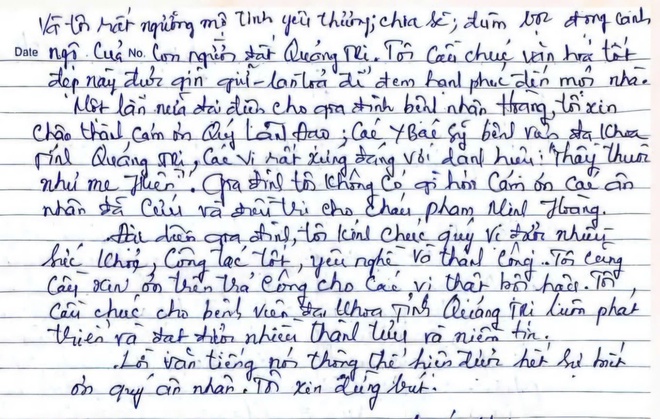 Và tôi rất ngưỡng mộ tình yêu thương; chia sẽ; đùm bọc đồng cảnh
Date ngộ. Của No. Con người đất Quảng Trị. Tôi Cầu chúc văn hoá tốt
đẹp này được gìn giữ - lan toả để đem hạnh phúc đến mọi nhà.
Một lần nữa đại diện cho gia đình bệnh nhân Hoàng, tôi xin
Chân thành, cám ơn Quý Lãnh Đạo; Các Y Bác Sỹ bệnh viện đa khoa
Tỉnh Quảng Trị, Các vị rất xứng đáng với danh hiệu: "Thầy thuốc
như mẹ Hiền". Gia đình tôi không có gì hơn Cám ơn các ân
nhân đã Cứu và điều trị cho cháu, phạm Minh Hoàng.
Đại diện gia đình, tôi kính chúc quý vị được nhiều
Sức khoẻ, Công tác tốt, yêu nghề và thành công. Tôi cũng
Cầu xin ơn trên trả Công cho các vị thật bội hậu. Tôi
Cầu chúc cho bệnh viện đa khoa Tỉnh Quảng Trị luôn phát
triển và đạt được nhiều thành tựu và niềm tin.
Lời văn tiếng nói không thể hiện được hết sự biết
ơn quý ân nhân. Tôi xin dừng bút.